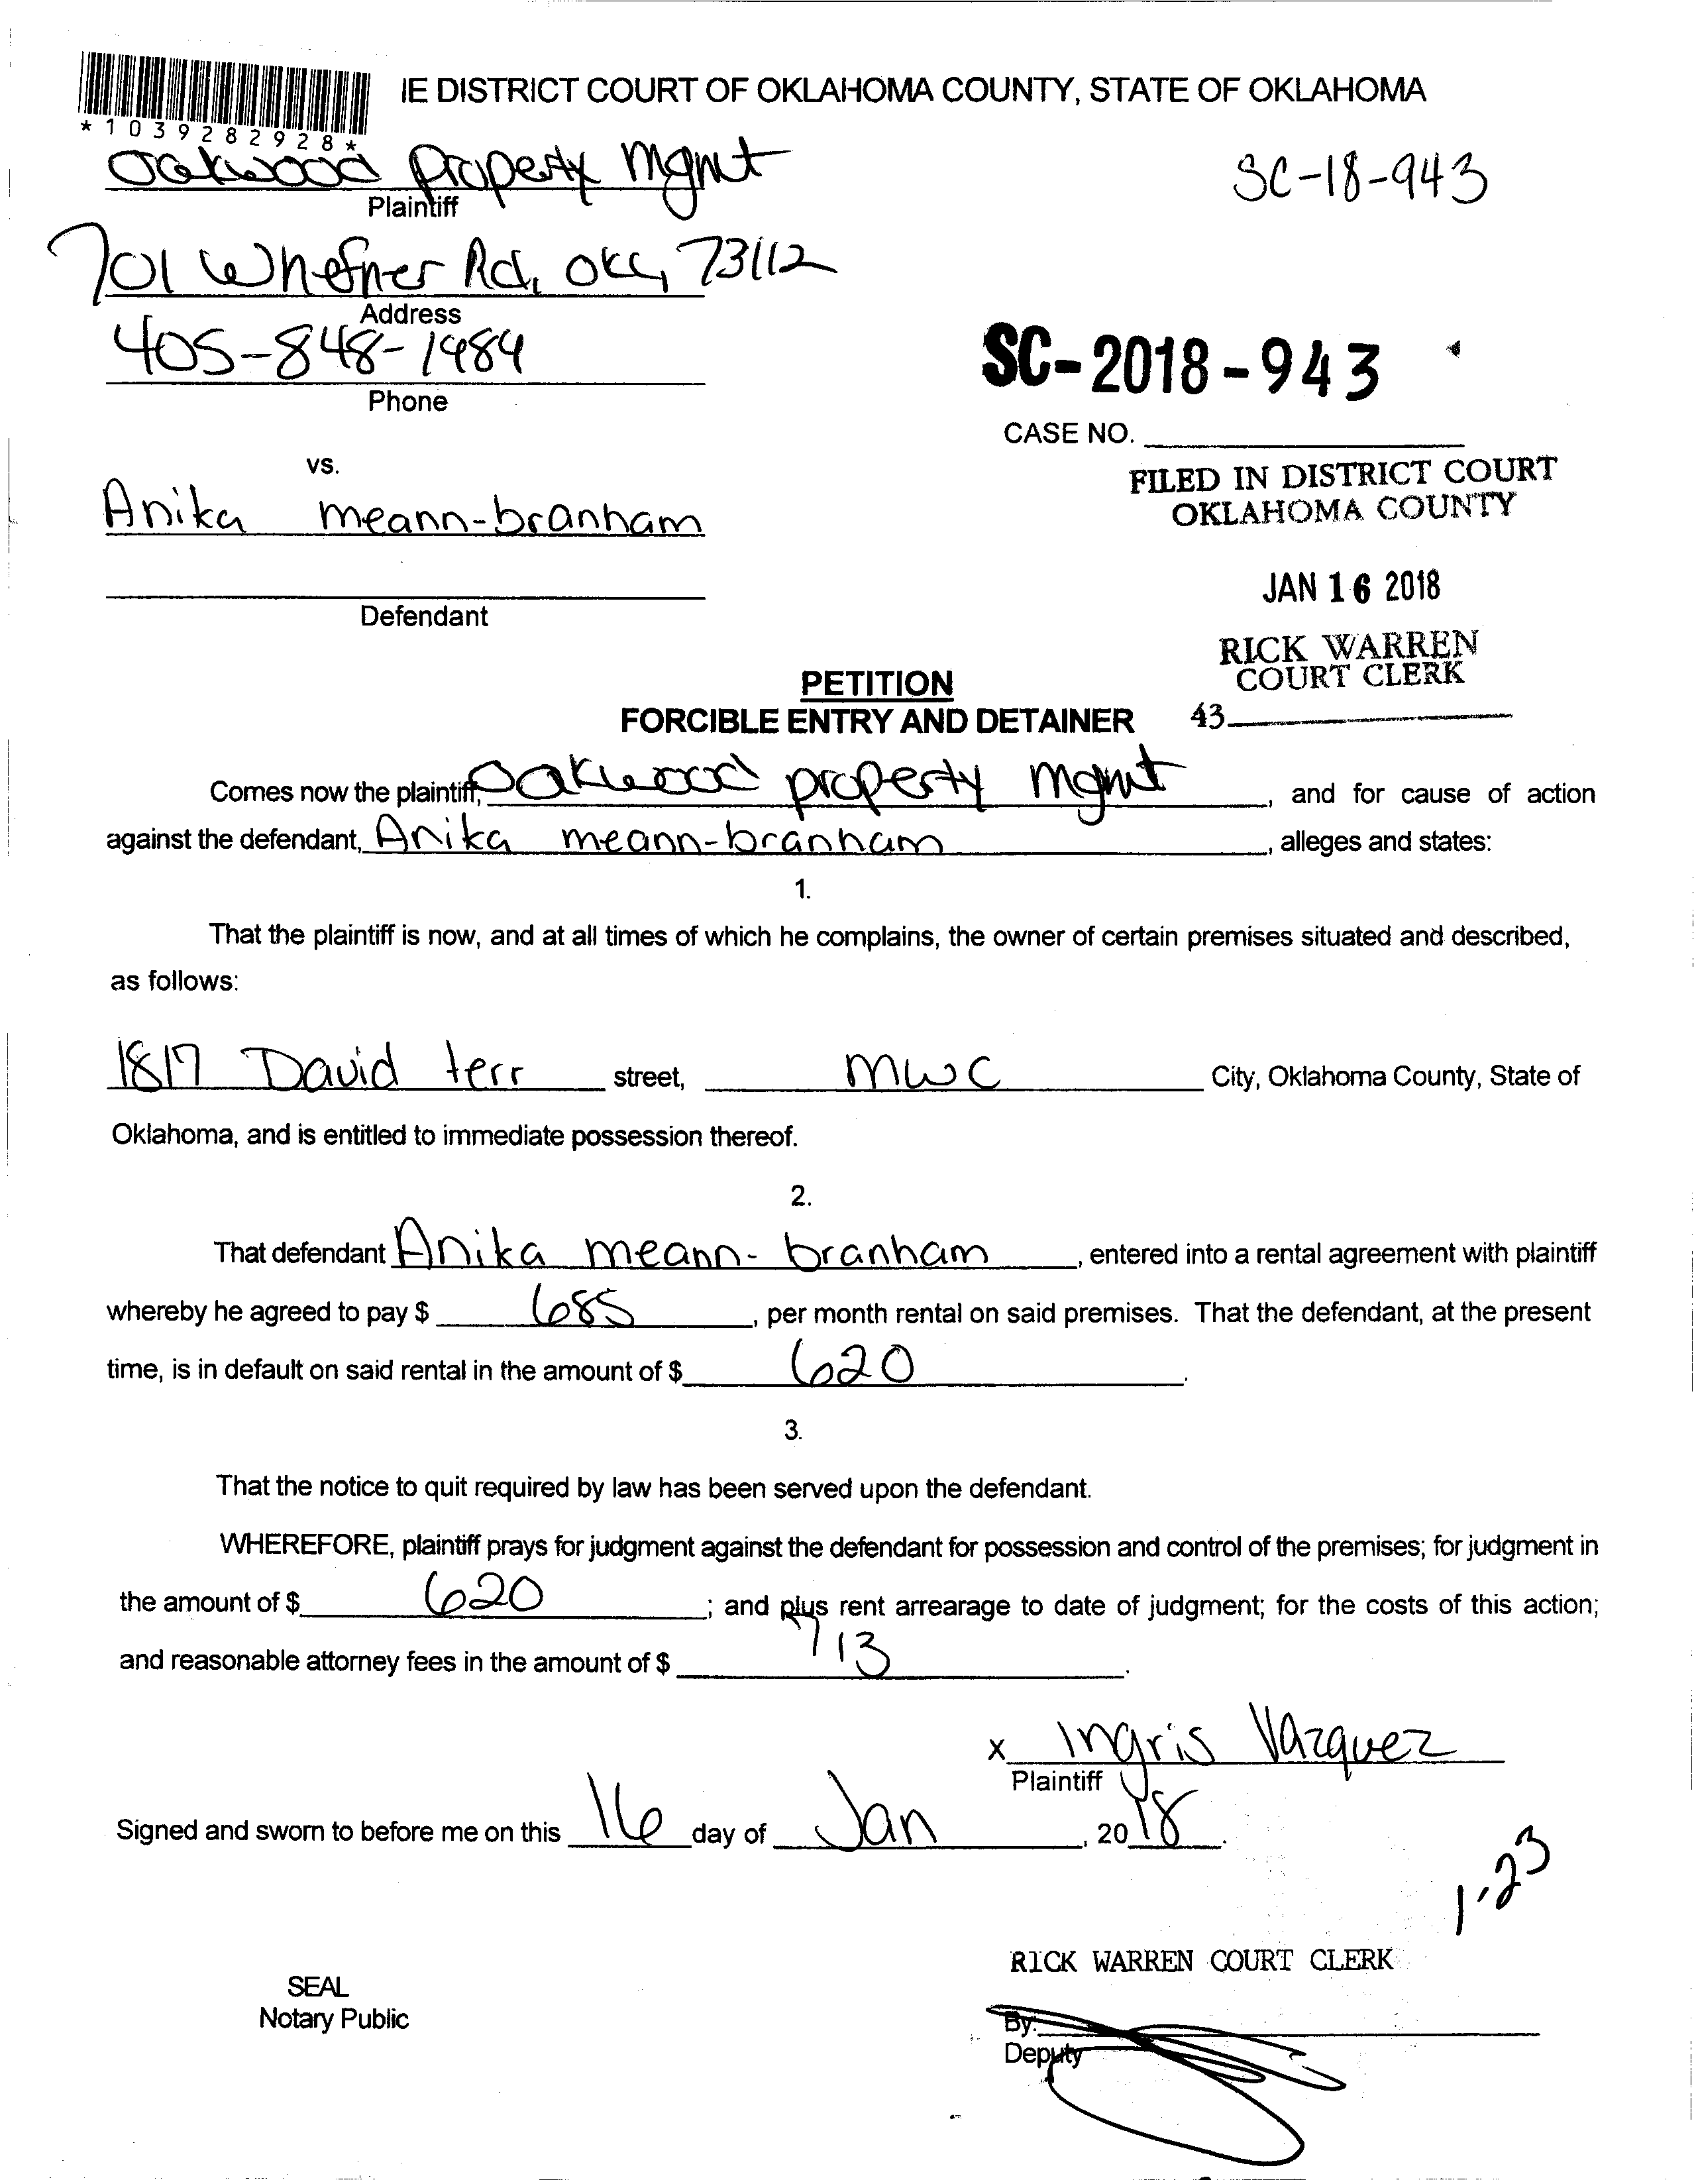 IE DISTRICT COURT OF OKLAHOMA COUNTY, STATE OF OKLAHOMA
*1039282928*
Oakwood Property Mgmt
SC-18-943
Plaintiff
701 Whefner Rd, OKC, 73112
Address
405-848-1484
Phone
SC-2018-943
CASE NO.
vs.
FILED IN DISTRICT COURT
OKLAHOMA COUNTY
Anika meann-branham
JAN 16 2018
Defendant
RICK WARREN
COURT CLERK
43
PETITION
FORCIBLE ENTRY AND DETAINER
Comes now the plaintiff, Oakwood property mgmt, and for cause of action
against the defendant, Anika meann-branham, alleges and states:
1.
That the plaintiff is now, and at all times of which he complains, the owner of certain premises situated and described,
as follows:
1817 David terr street, MWC City, Oklahoma County, State of
Oklahoma, and is entitled to immediate possession thereof.
2.
That defendant Anika meann-branham, entered into a rental agreement with plaintiff
whereby he agreed to pay $ 685, per month rental on said premises. That the defendant, at the present
time, is in default on said rental in the amount of $ 620.
3.
That the notice to quit required by law has been served upon the defendant.
WHEREFORE, plaintiff prays for judgment against the defendant for possession and control of the premises; for judgment in
the amount of $ 620; and plus rent arrearage to date of judgment; for the costs of this action;
and reasonable attorney fees in the amount of $ 713.
x Ingris Vazquez
Plaintiff
Signed and sworn to before me on this 16 day of Jan, 2018.
1-23
RICK WARREN COURT CLERK
SEAL
Notary Public
By:
Deputy